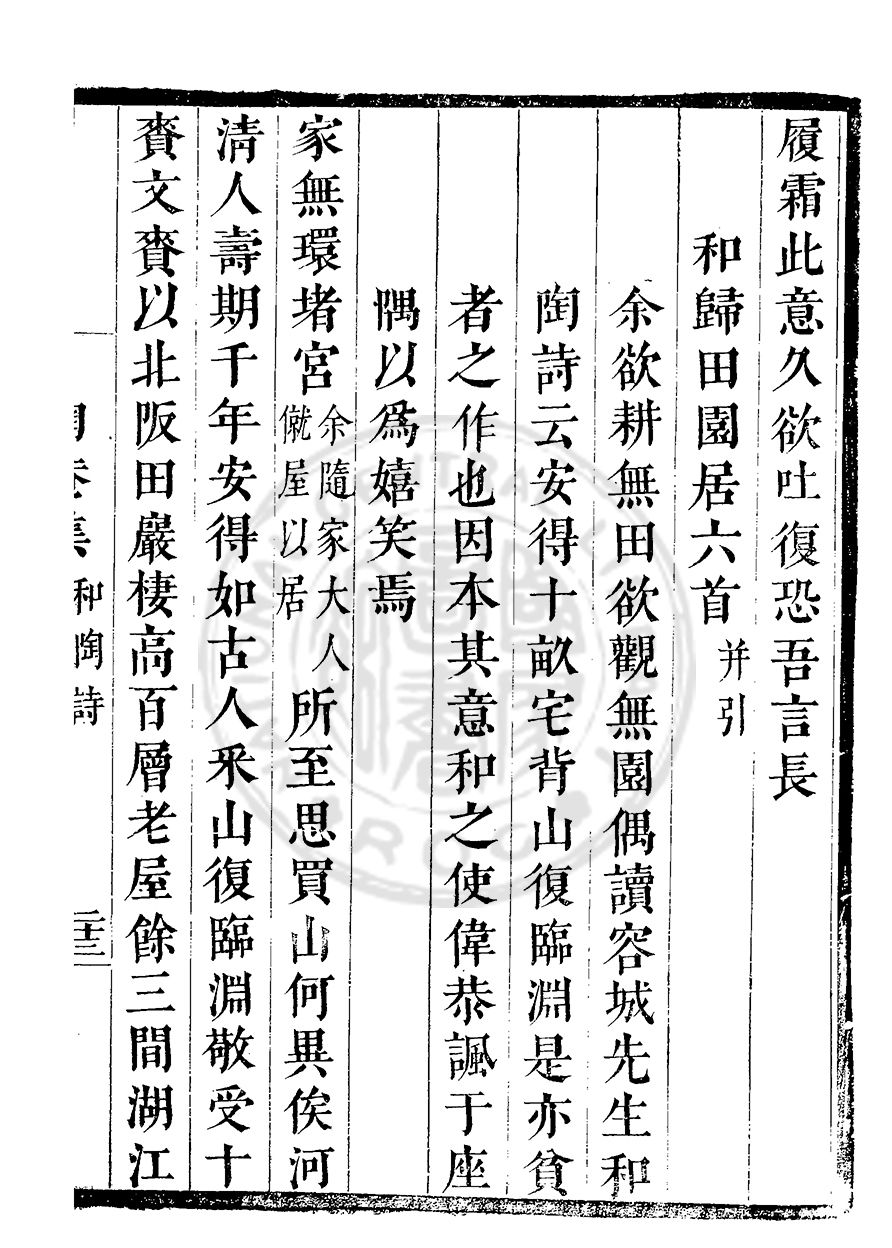 履霜此意久欲吐復恐吾言長
和歸田園居六首 并引
余欲耕無田欲觀無園偶讀容城先生和
陶詩云安得十畝宅背山復臨淵是亦貧
者之作也因本其意和之使偉恭諷于座
隅以爲嬉笑焉
家無環堵宮 余隨家大人僦屋以居 所至思買山何異俟河
清人壽期千年安得如古人采山復臨淵敬受十
賚文賚以北阪田巖棲高百層老屋餘三間湖江
和陶詩 二十三